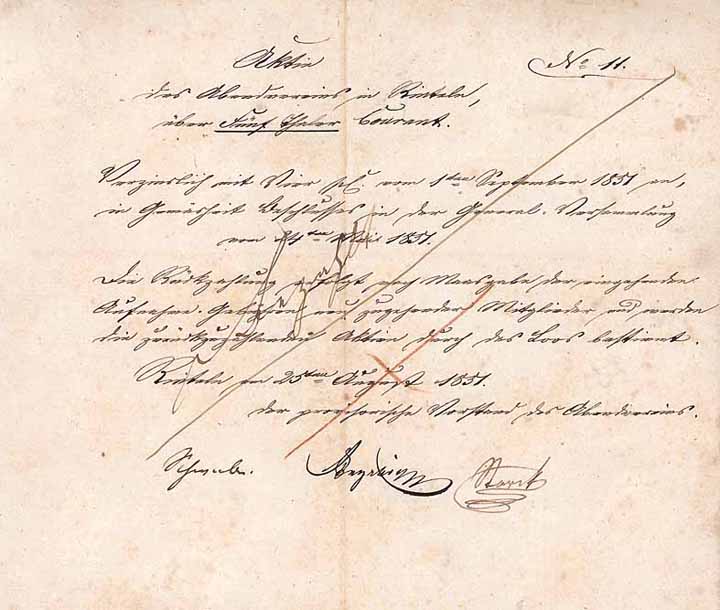 Aktie No 11.
des Abendvereins in Rinteln,
über Fünf Thaler Courant.
Verzinslich mit Vier pC. vom 1ten September 1851 an,
in Gemäsheit Beschlusses in der General-Versammlung
vom 24ten Mai 1851.
Die Rückzahlung erfolgt nach Maasgabe der eingehenden
Aufnahme-Gebühren neu zugehender Mitglieder und werden
die zurückzuzahlenden Aktien durch das Loos bestimmt.
Rinteln am 25ten August 1851.
der provisorische Vorstand des Abendvereins.
Schwabe. Storck
bezahlt